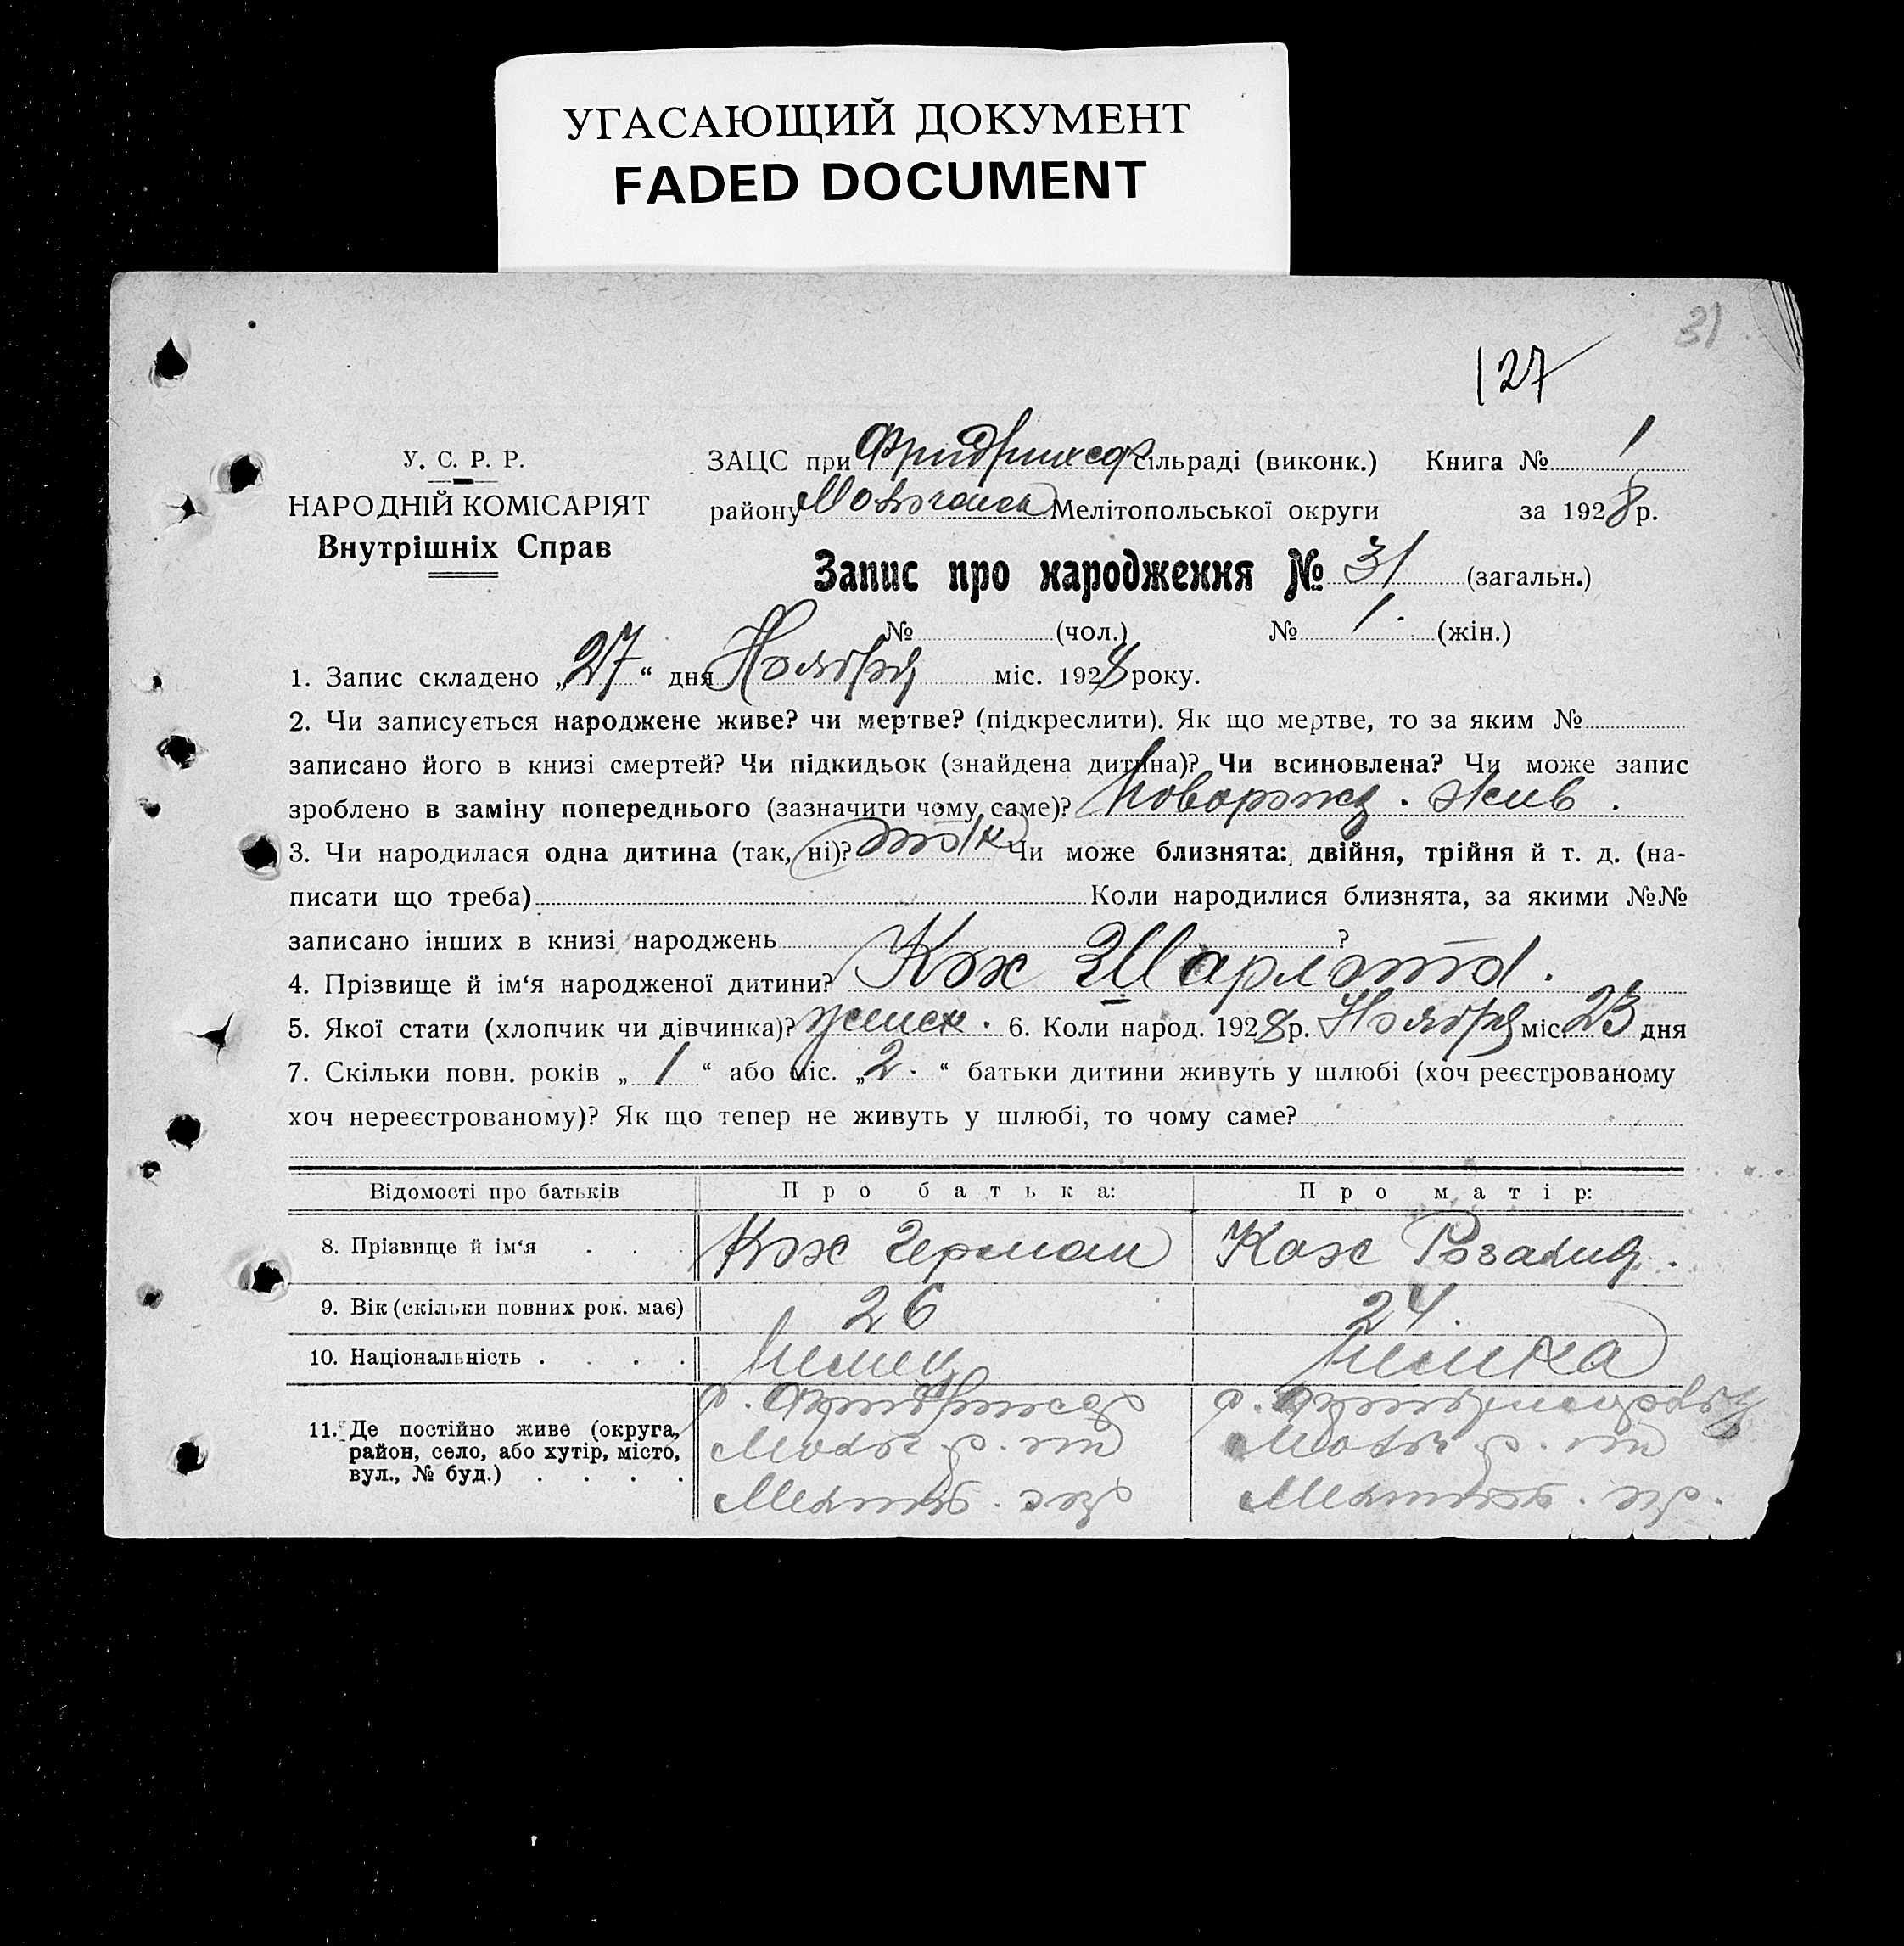 УГАСАЮЩИЙ ДОКУМЕНТ
FADED DOCUMENT
31
127
У. С. Р. Р.
НАРОДНІЙ КОМІСАРІЯТ
Внутрішніх Справ
ЗАЦС при Фридрихсф сільраді (виконк.) Книга № 1
району Молочанск Мелітопольської округи за 1928 р.
Запис про народження № 31 (загальн.)
№ (чол.) № 1. (жін.)
1. Запис складено „27“ дня Ноября міс. 1928 року.
2. Чи записується народжене живе? чи мертве? (підкреслити). Як що мертве, то за яким №
записано його в книзі смертей? Чи підкидьок (знайдена дитина)? Чи всиновлена? Чи може запис
зроблено в заміну попереднього (зазначити чому саме)? Новорожд. жив.
3. Чи народилася одна дитина (так, ні)? так Чи може близнята: двійня, трійня й т. д. (на-
писати що треба) Коли народилися близнята, за якими №№
записано інших в книзі народжень ?
4. Прізвище й ім‘я народженої дитини? Кох Шарлота.
5. Якої стати (хлопчик чи дівчинка)? женск. 6. Коли народ. 1928 р. Ноября міс. 23 дня
7. Скільки повн. років „1“ або міс. „2.“ батьки дитини живуть у шлюбі (хоч реєстрованому
хоч нереєстрованому)? Як що тепер не живуть у шлюбі, то чому саме?
Відомості про батьків Про батька: Про матір:
8. Прізвище й ім‘я . . . Кох Герман Кох Розалия.
9. Вік (скільки повних рок. має) 26 24.
10. Національність . . . . Немец Немка
11. Де постійно живе (округа,
район, село, або хутір, місто,
вул., № буд.) . . . .